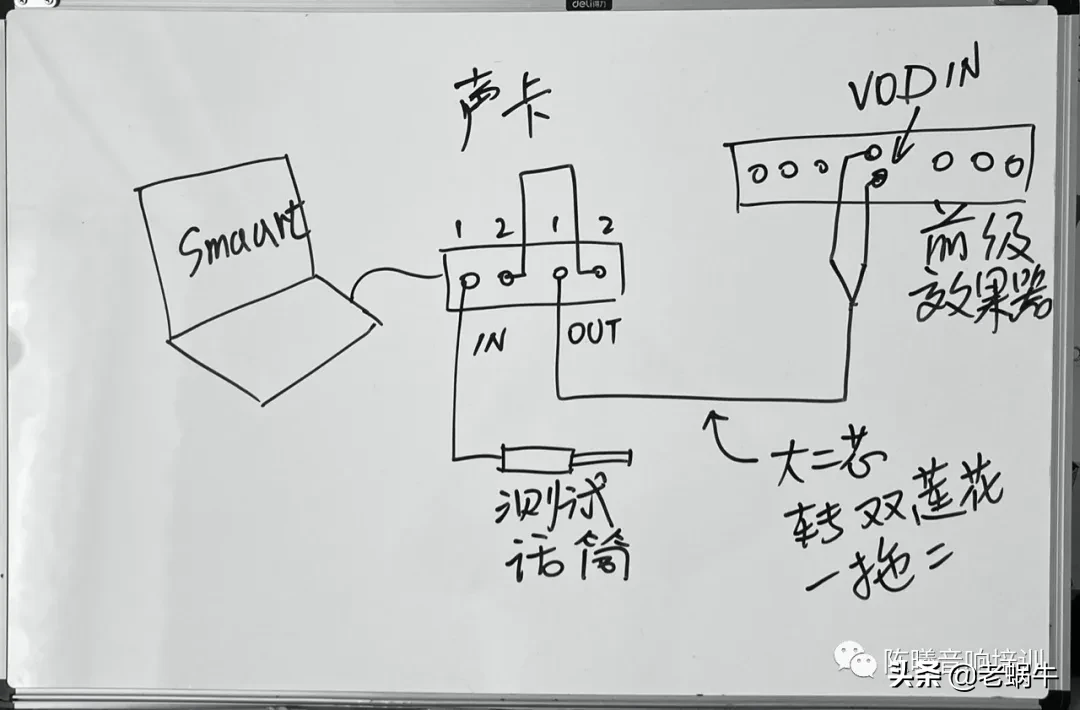 deli得力
声卡
VOD IN
Smaart
1 2 1 2
IN
OUT
前级
效果器
测试
话筒
大二芯
转双莲花
一拖二
陈曦音响培训
头条 @老蜗牛